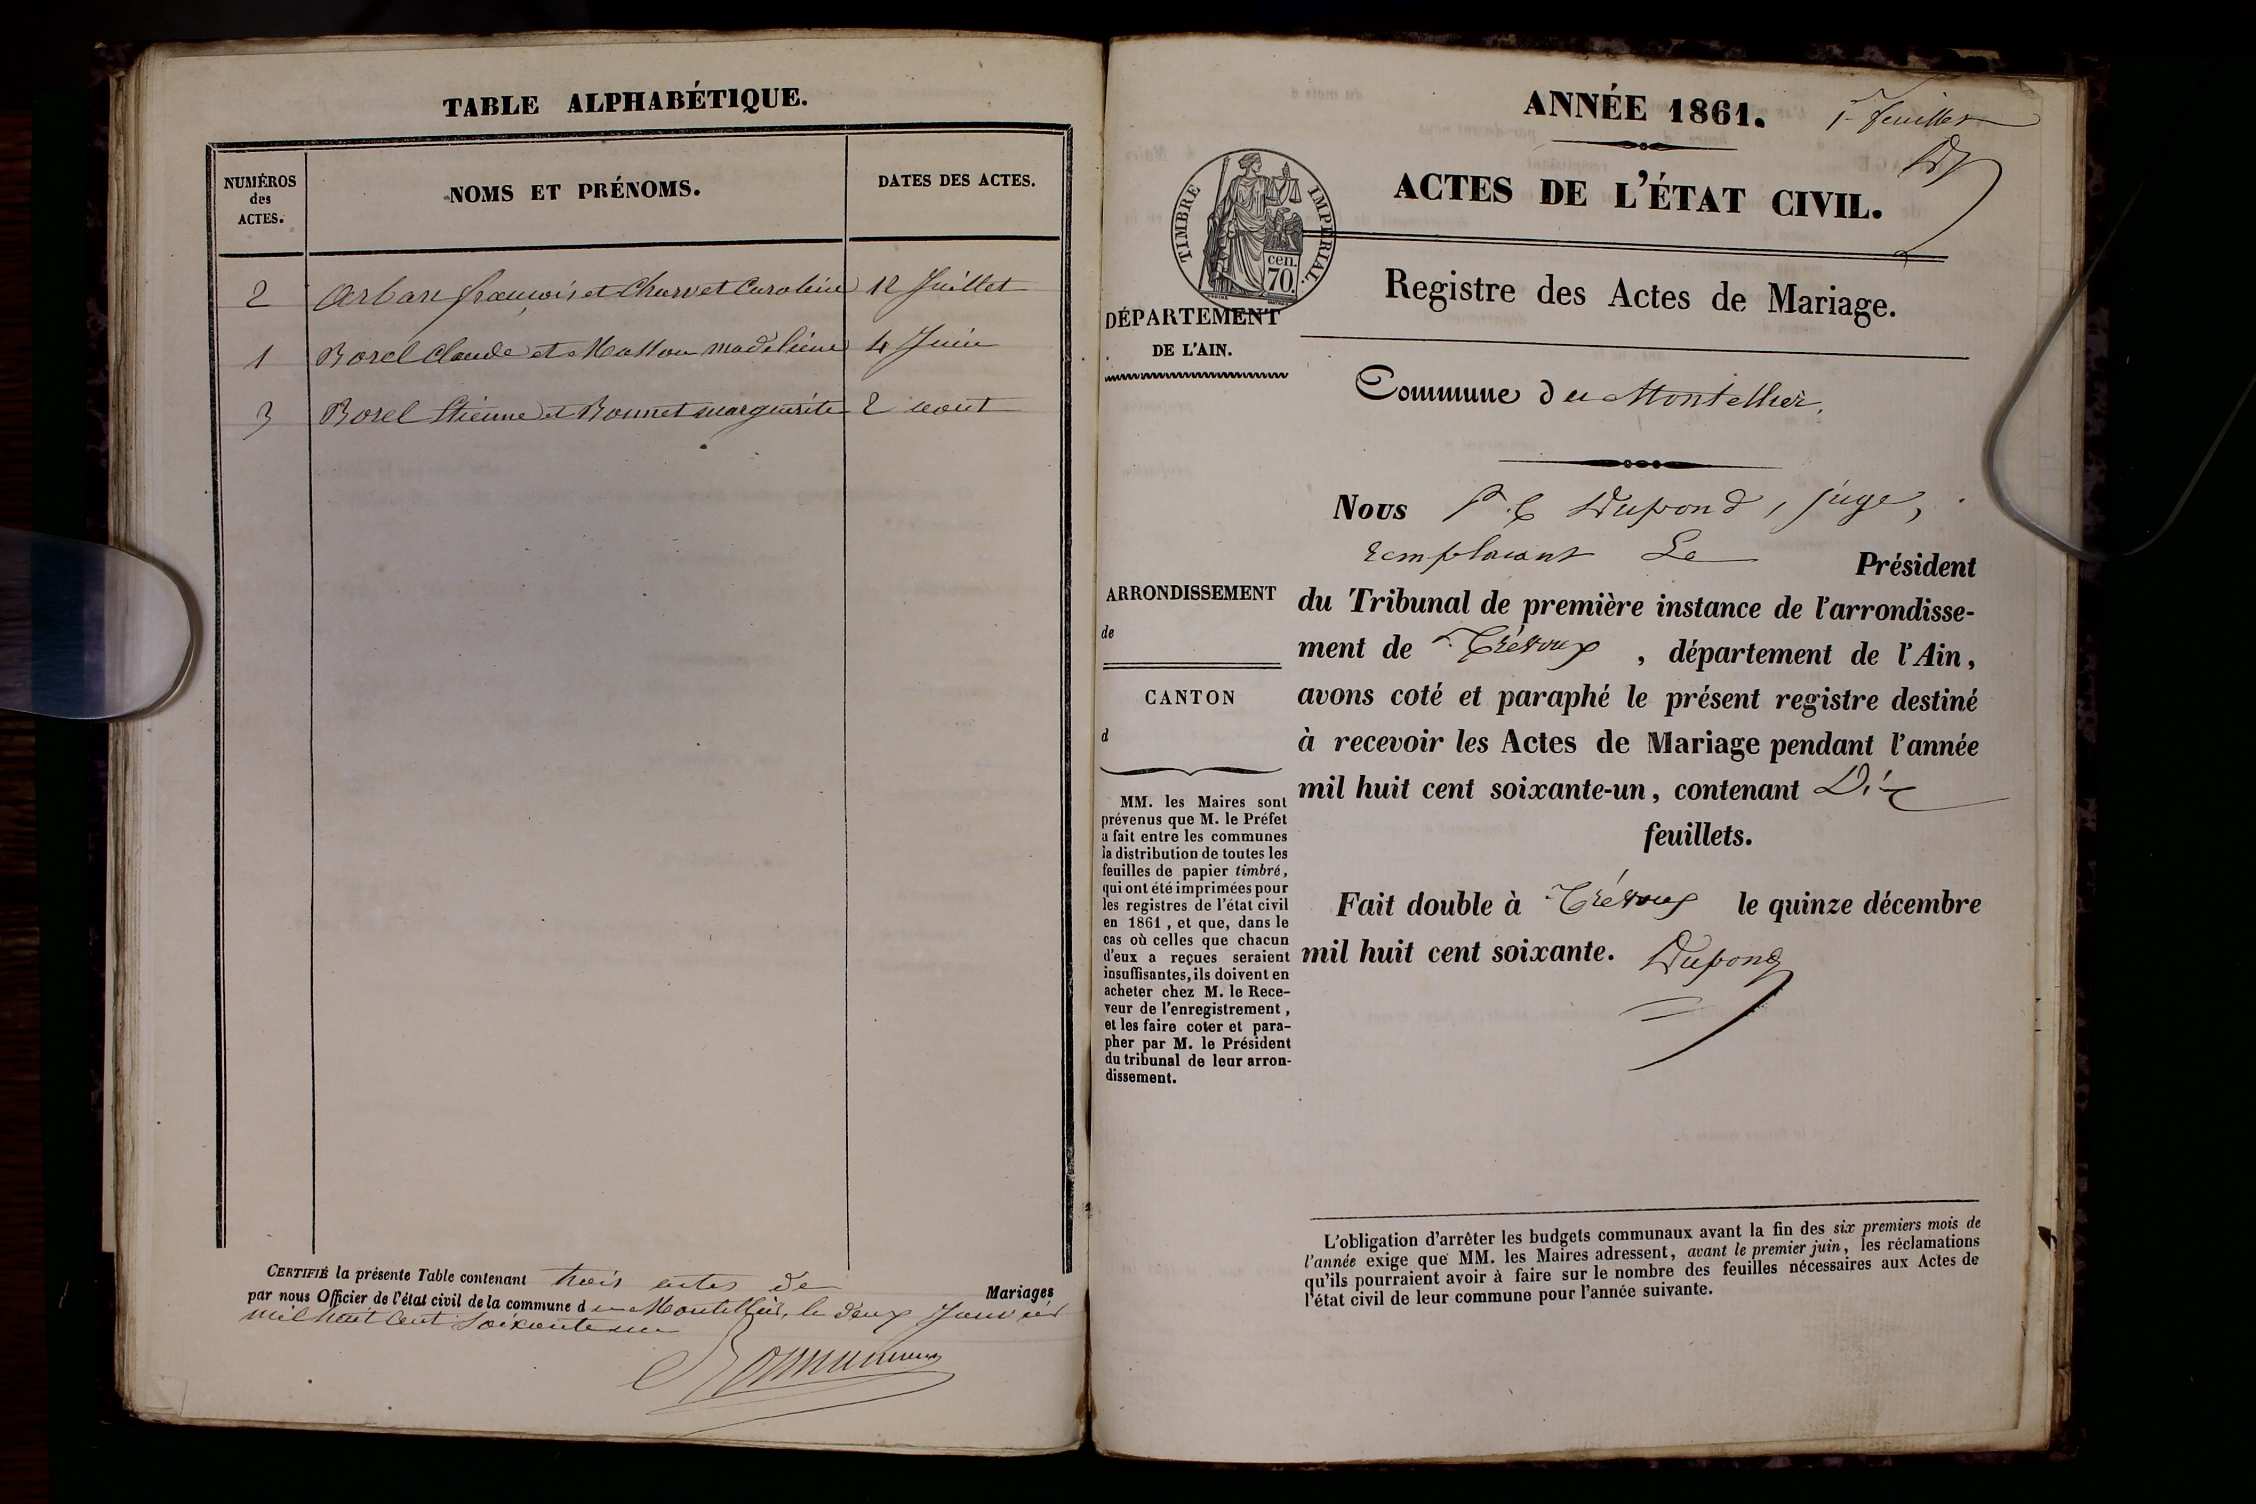 TABLE ALPHABÉTIQUE.
NUMÉROS
des
ACTES.
NOMS ET PRÉNOMS.
DATES DES ACTES.
2 Arban françois et Charvet Caroline 12 Juillet
1 Borel Claude et Masson madeleine 4 Juin
3 Borel Etienne et Bonnet marguerite 2 aout
CERTIFIÉ la présente Table contenant trois actes de Mariages
par nous Officier de l'état civil de la commune du Montellier, le deux Janvier
mil huit Cent Soixante un
ANNÉE 1861.
1er feuillet
ACTES DE L'ÉTAT CIVIL.
TIMBRE IMPÉRIAL.
cen.
70.
Registre des Actes de Mariage.
DÉPARTEMENT
DE L'AIN.
Commune du Montellier.
Nous P. E Dupond, juge,
remplacant Le Président
ARRONDISSEMENT
de
du Tribunal de première instance de l'arrondisse-
ment de Trévoux, département de l'Ain,
CANTON
d
avons coté et paraphé le présent registre destiné
à recevoir les Actes de Mariage pendant l'année
mil huit cent soixante-un, contenant Dix
feuillets.
Fait double à Trévoux le quinze décembre
mil huit cent soixante. Dupond
MM. les Maires sont
prévenus que M. le Préfet
a fait entre les communes
la distribution de toutes les
feuilles de papier timbré,
qui ont été imprimées pour
les registres de l'état civil
en 1861, et que, dans le
cas où celles que chacun
d'eux a reçues seraient
insuffisantes, ils doivent en
acheter chez M. le Rece-
veur de l'enregistrement,
et les faire coter et para-
pher par M. le Président
du tribunal de leur arron-
dissement.
L'obligation d'arrêter les budgets communaux avant la fin des six premiers mois de
l'année exige que MM. les Maires adressent, avant le premier juin, les réclamations
qu'ils pourraient avoir à faire sur le nombre des feuilles nécessaires aux Actes de
l'état civil de leur commune pour l'année suivante.